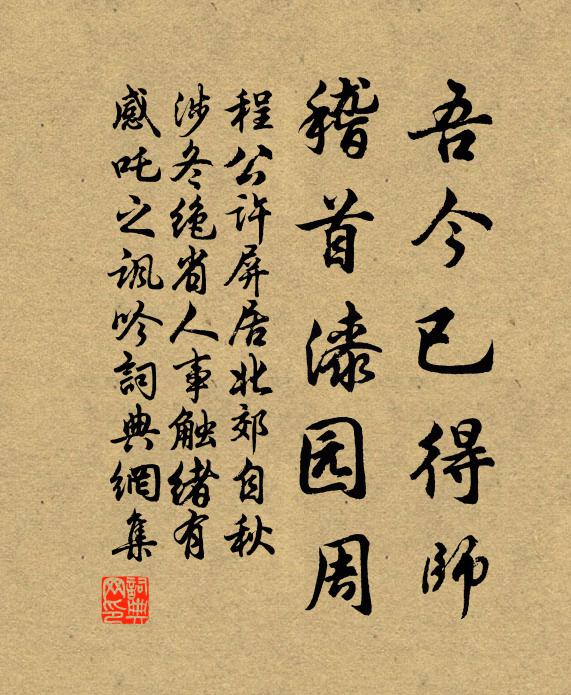 吾今已得師
稽首漆园周
程公许屏居北郊自秋
涉冬绝省人事触绪有
感吒之讽吟詞典網集
詞典
网印